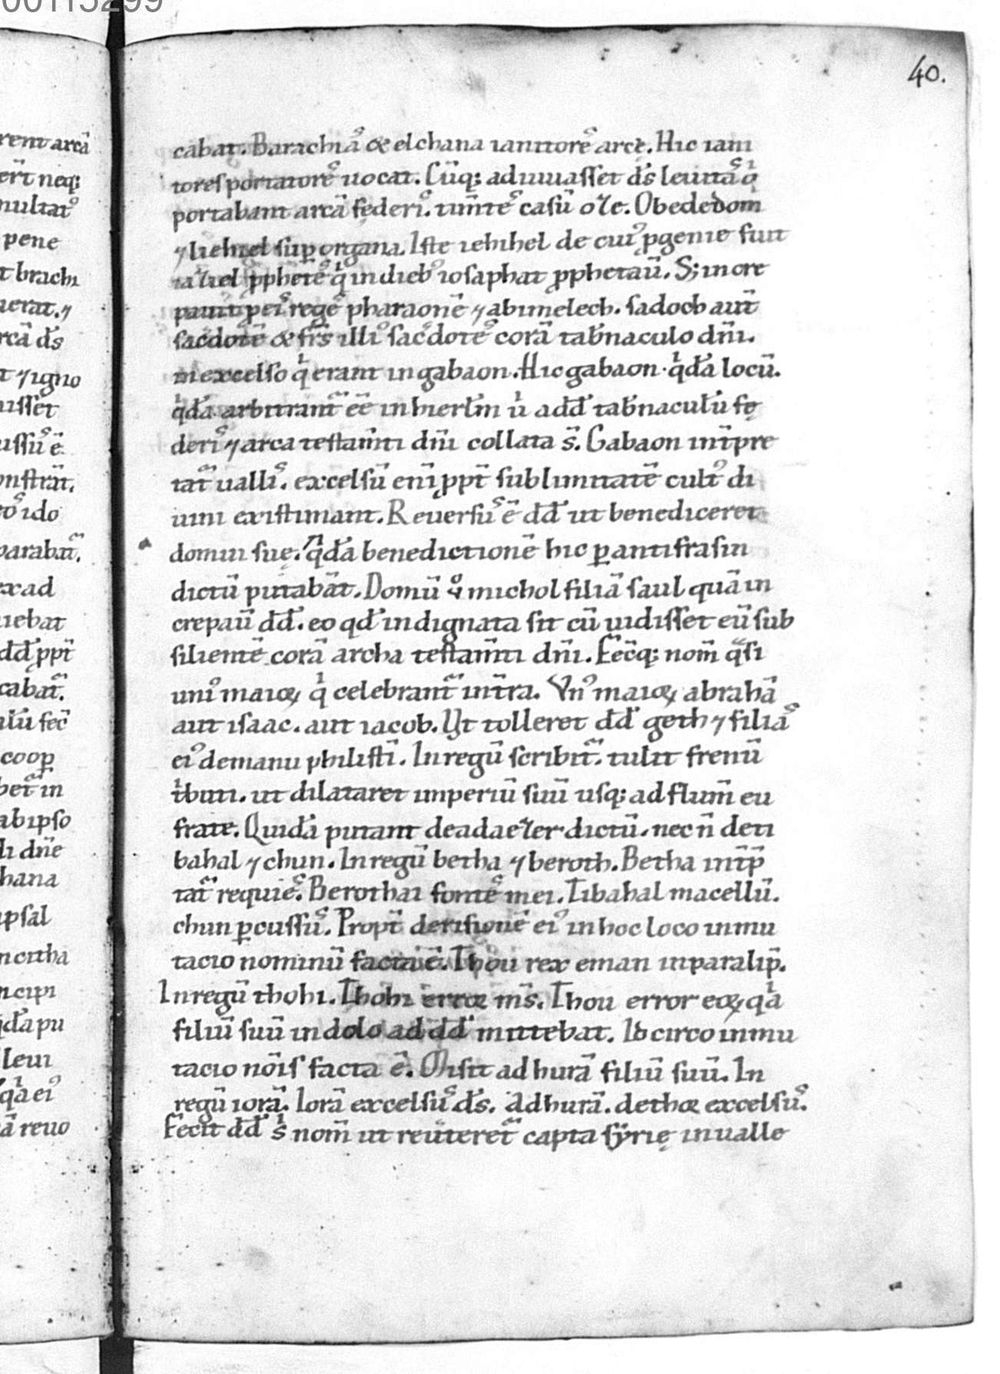 00115299
40.
rent arcā
ert̄ neq;
multat᷒
pene
t brachi
uerat. ⁊
rcā ds̄
t ⁊ igno
uisset
ussū ē
onstrat̄.
ido
parabat̄.
ex ad
iebat
dd̄ ppt̄
cabat̄.
coop
bet̄ in
ab ipso
li dn̄e
hana
ipsal
ncitha
ncipi
qdā pu
leui
qā ei᷒
ā reuo
cabat. Barachiā & elchana ianitore᷒ arce. Hic iani
tores portatore᷒ uocat. Cūq; adiuuasset ds̄ leuita᷒ qͥ
portabant arcā federi᷒. timte᷒ casū oze. Obededom
⁊ iehiel sup organa. Iste iehihel de cui᷒ pgenie fuit
iaziel pphete᷒ qͥ in dieb᷒ iosaphat pphetau̅. S; incre
pauit p ei᷒ rege᷒ pharaonē ⁊ abimelech. sadoch aut̄
sacdotē & frs̄ illi᷒ sacdote᷒ corā tab̄naculo dn̄i.
in excelso qͥ erant in gabaon. Hic gabaon. qͥdā locū.
qͥdā arbitrant̄ ee̅ in hierlm̄ uͥ a dd̄ tab̄naculū fę
deri᷒ ⁊ arca testam̄ti dn̄i collata s̄. Gabaon int̄pre
tat̄ ualli᷒. excelsū eni̅ ppt̄ sublimitatē cult᷒ di
uini existimant. Reuersu᷒ ē dd̄ ut benediceret
domui suę. qͥdā benedictionē hic p antifrasin
dictū putabāt. Domū uͦ michol filiā saul quā in
crepau̅ dd̄. eo qd̄ indignata sit cū uidisset eū sub
silientē corā archa testam̄ti dn̄i. Fec̄q; nom̄ qͣsi
uni᷒ maioꝝ qͥ celebrant̄ int̄ra. Vn᷒ maioꝝ abrahā
aut isaac. aut iacob. Vt tolleret dd̄ geth ⁊ filia᷒
ei᷒ de manu philisti̅. In regū scribit̄. tulit frenū
tͥbuti. ut dilataret imperiū suū usq; ad flum̄ eu
frate. Quidā putant de adaezer dictū. nec n̄ deti
bahal ⁊ chun. In regū betha ⁊ beroth. Betha int̄p
tat̄ requie᷒. Berothai fonte᷒ mei. Tibahal macellū.
chun pcussu᷒. Propt̄ derisionē ei᷒ in hoc loco inmu
tacio nominū facta ē. Thou rex eman in paralip̄.
In regū thohi. Thohi error ms̄. Thou error eoꝝ qͥā
filiū suū in dolo ad dd̄ mittebat. Idcirco inmu
tacio noi̅s facta ē. Misit adhurā filiū suū. In
regū iorā. Iorā excelsu᷒ ds̄. Adhurā. dethor excelsu᷒.
Fecit dd̄ sͥ nom̄ ut reuteret̄ capta syrię in ualle